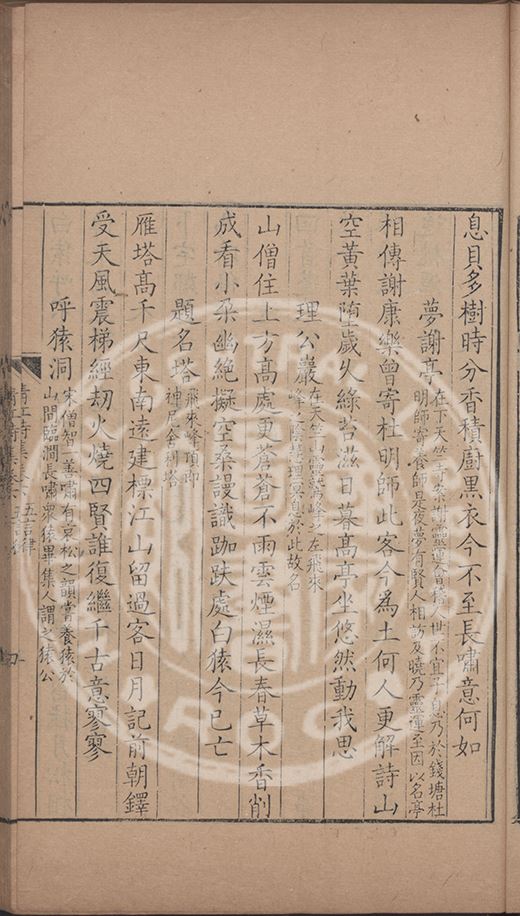 息貝多樹時分香積廚黑衣今不至長嘯意何如
夢謝亭
在下天竺寺謝靈運會稽人世不宜子息乃於錢塘杜
明師寄養師是夜夢有賢人相訪及曉乃靈運至因以名亭
相傳謝康樂曾寄杜明師此客今為土何人更解詩山
空黃葉墮歲久綠苔滋日暮高亭坐悠然動我思
理公巖
在天竺山靈鷲峰之左飛來
峰之陰慧理宴息於此故名
山僧住上方高處更蒼蒼不雨雲煙濕長春草木香削
成看小朶幽絕擬空桑謾識跏趺處白猿今已亡
題名塔
飛來峰頂即
神尼舍利塔
雁塔高千尺東南遠建標江山留過客日月記前朝鐸
受天風震梯經劫火燒四賢誰復繼千古意寥寥
呼猿洞
宋僧智一善嘯有哀松之韻嘗養猿於
山間臨澗長嘯眾猿畢集人謂之猿公
五言律
四